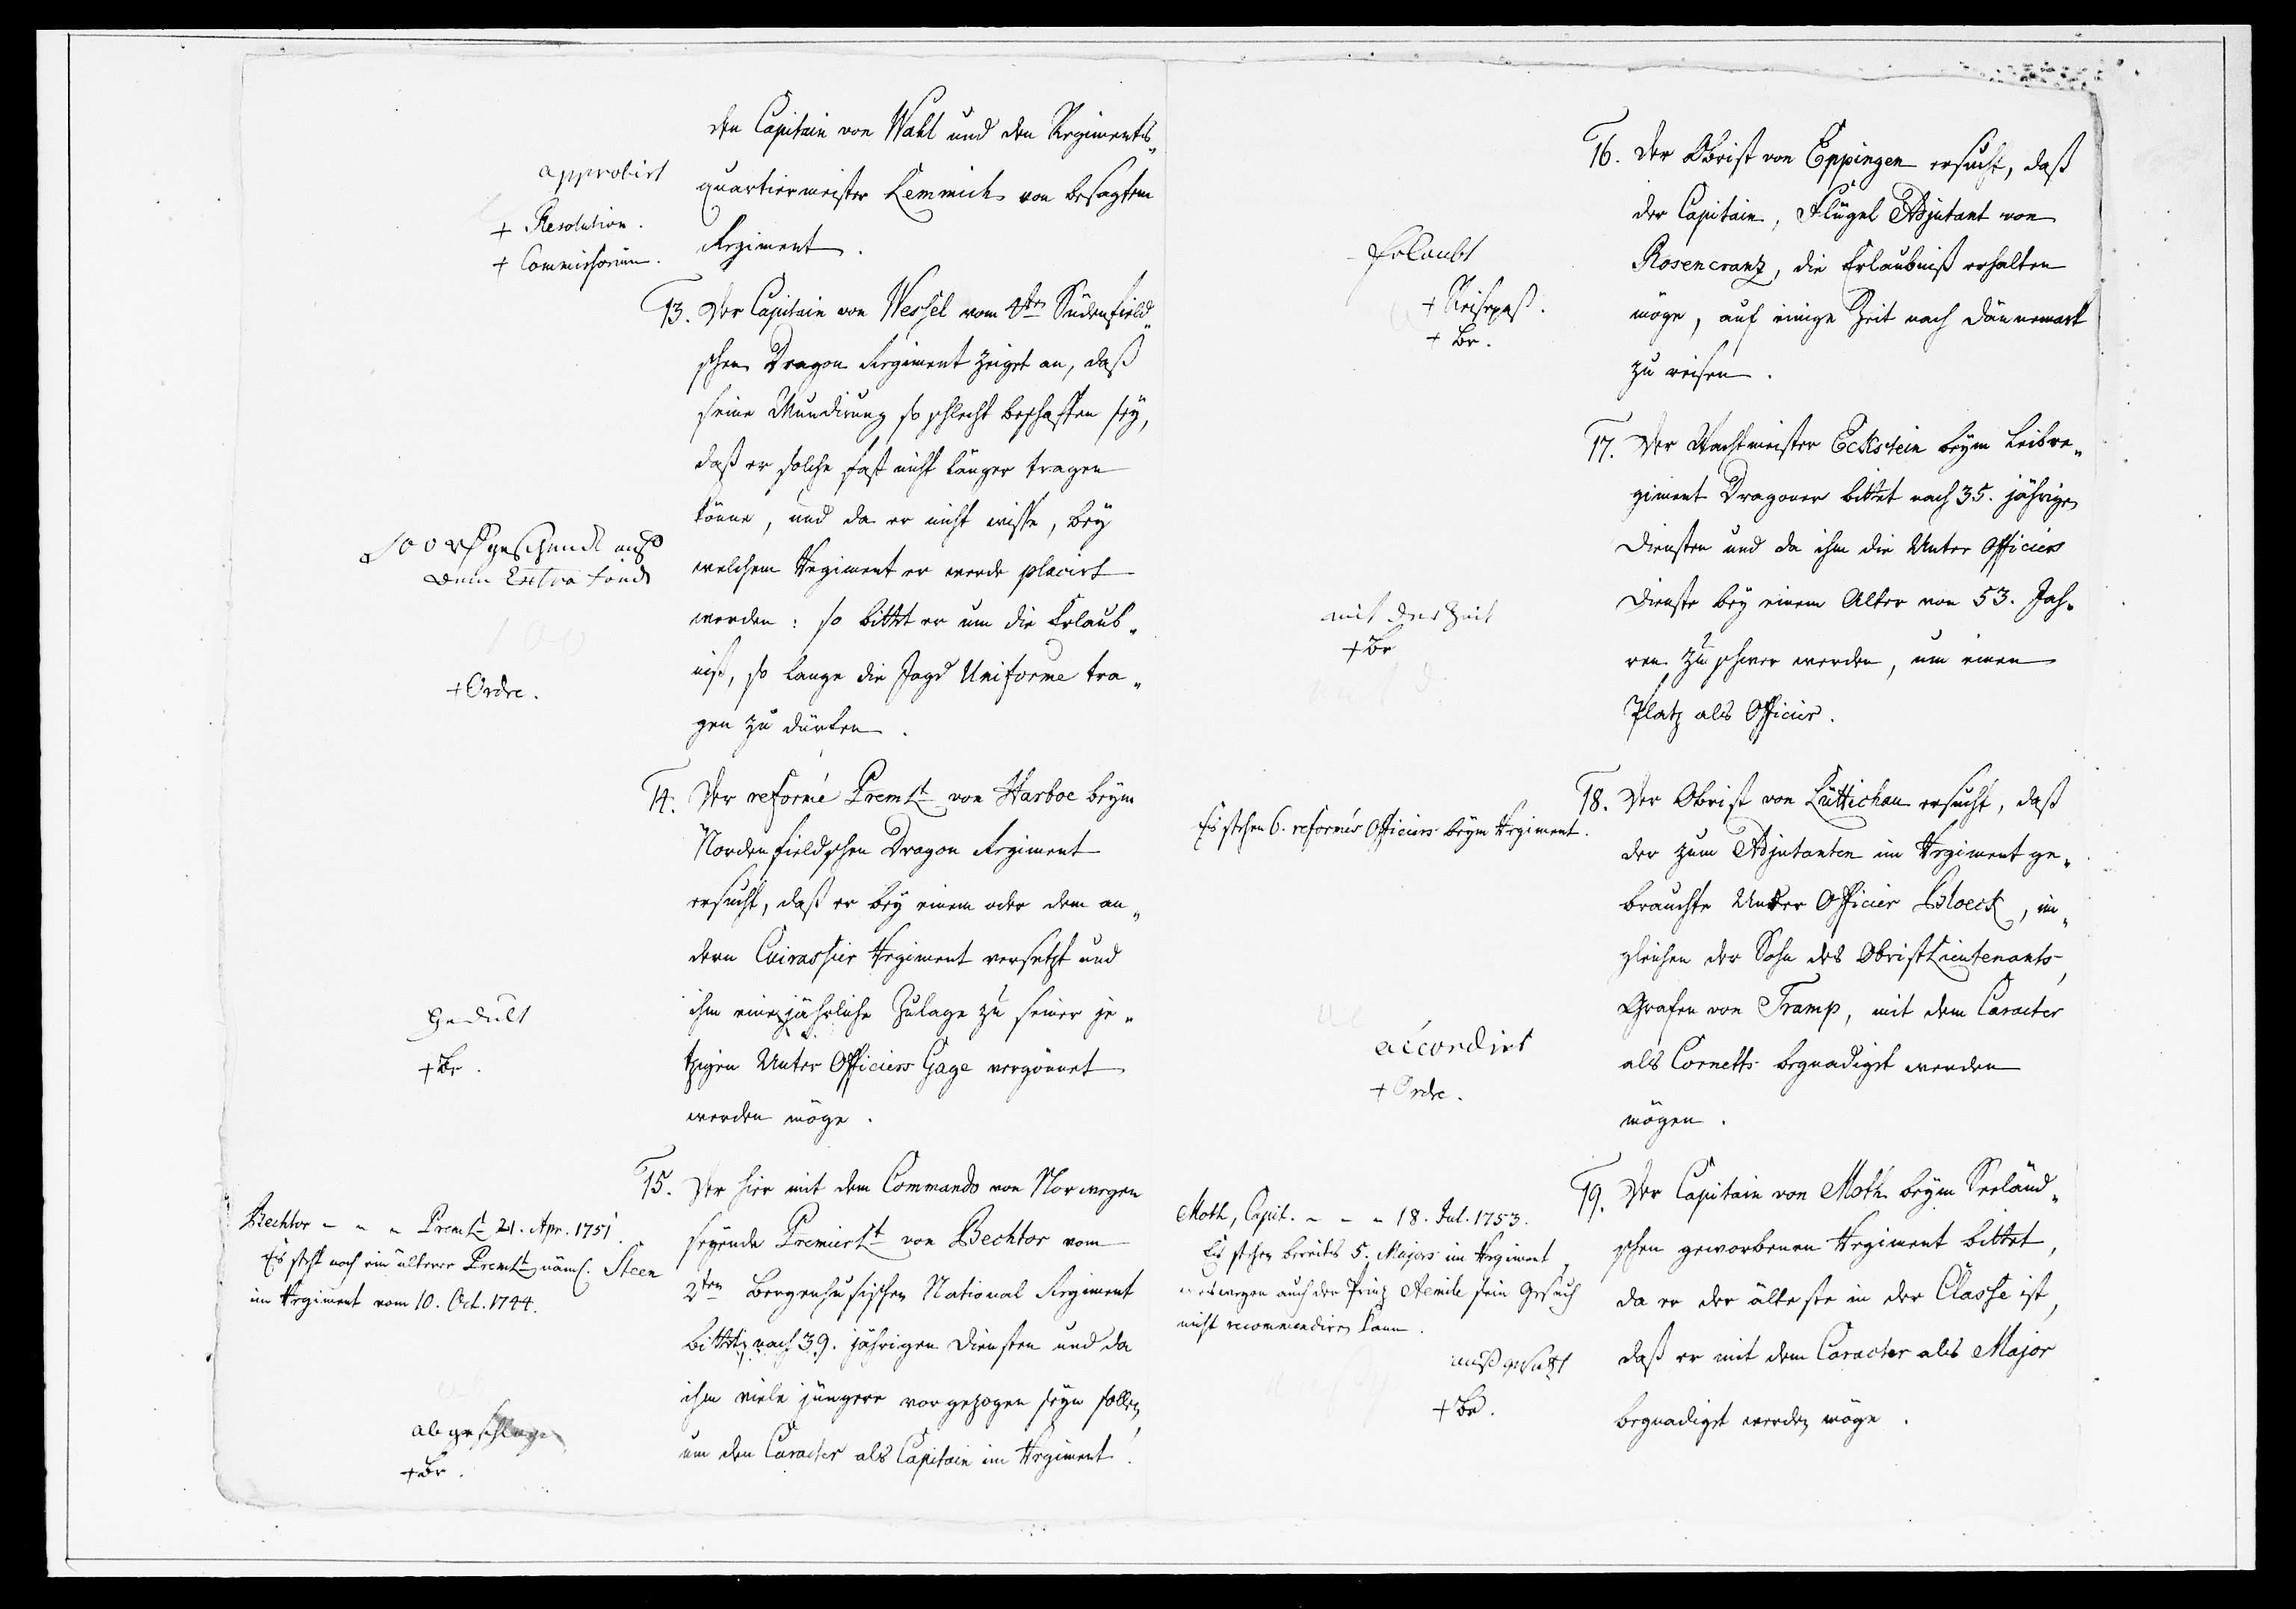 den Capitain von Wahl und den Regiments„
approbirt
quartiermeister Lemmich von besagtem
+ Resolution.
Regiment.
+ Commissorium.
13. Der Capitain von Wessel vom 4ten Südenfield„
schen Dragon Regiment zeiget an, daß
seine Mundirung so schlecht beschaffen sey,
daß er solche fast nicht länger tragen
könne, und da er nicht wisse, bey
100 geschenckt auß
dem Extra fond
welchem Regiment er werde placirt
werden: so bittet er um die Erlaub„
niß, so lange die Jagd Uniforme tra„
+ Ordre.
gen zu dürfen.
14. Der reformé PremLt von Harboe beym
Nordenfieldschen Dragon Regiment
ersucht, daß er bey einem oder dem an„
dern Cuirassier Regiment versetzt und
Gedult
ihm eine jährliche Zulage zu seiner je„
+ Br.
tzigen Unter Officiers Gage vergönnet
werden möge.
15. Der hier mit dem Commando von Norwegen
Bechtor - - - PremLt 21. Apr. 1751.
Es steht noch ein älterer PremLt näml. Steen
im Regiment vom 10. Oct. 1744.
seyende PremierLt von Bechtor vom
2ten Bergenhusischen National Regiment
bittet, nach 39. jährigen Diensten und da
ihm viele jüngere vorgezogen seyn sollen,
abgeschlagen
um den Caracter als Capitain im Regiment.
+ Br.
16. Der Obrist von Eppingen ersucht, daß
der Capitain, Flügel Adjutant von
Erlaubt
Rosencrantz, die Erlaubniß erhalten
+ Reisepaß.
möge, auf einige Zeit nach Dännemark
+ Br.
zu reisen.
17. Der Wachtmeister Eckstein beym Leibre„
giment Dragoner bittet nach 35. jährigen
Diensten und da ihm die Unter Officiers
Dienste bey einem Alter von 53. Jah„
mit der Zeit
+ Br
ren zu schwer werden, um einen
Platz als Officier.
18. Der Obrist von Lüttichau ersucht, daß
Es stehen 6. reformés Officiers beym Regiment.
der zum Adjutanten im Regiment ge„
brauchte Unter Officier Bloeck, im„
gleichen der Sohn des ObristLieutenants,
Grafen von Tramp, mit dem Caracter
accordirt
als Cornetts begnadigt werden
+ Ordre.
mögen.
19. Der Capitain von Moth beym Seeländ„
Moth, Capit. - - - 18. Jul. 1753.
Es stehen bereits 5. Majors im Regiment,
weswegen auch der Prinz Aemile sein Gesuch
nicht recommendiren kann.
schen geworbenen Regiment bittet,
da er der älteste in der Classe ist,
daß er mit dem Caracter als Major
außgesetzt
+ Br.
begnadigt werden möge.